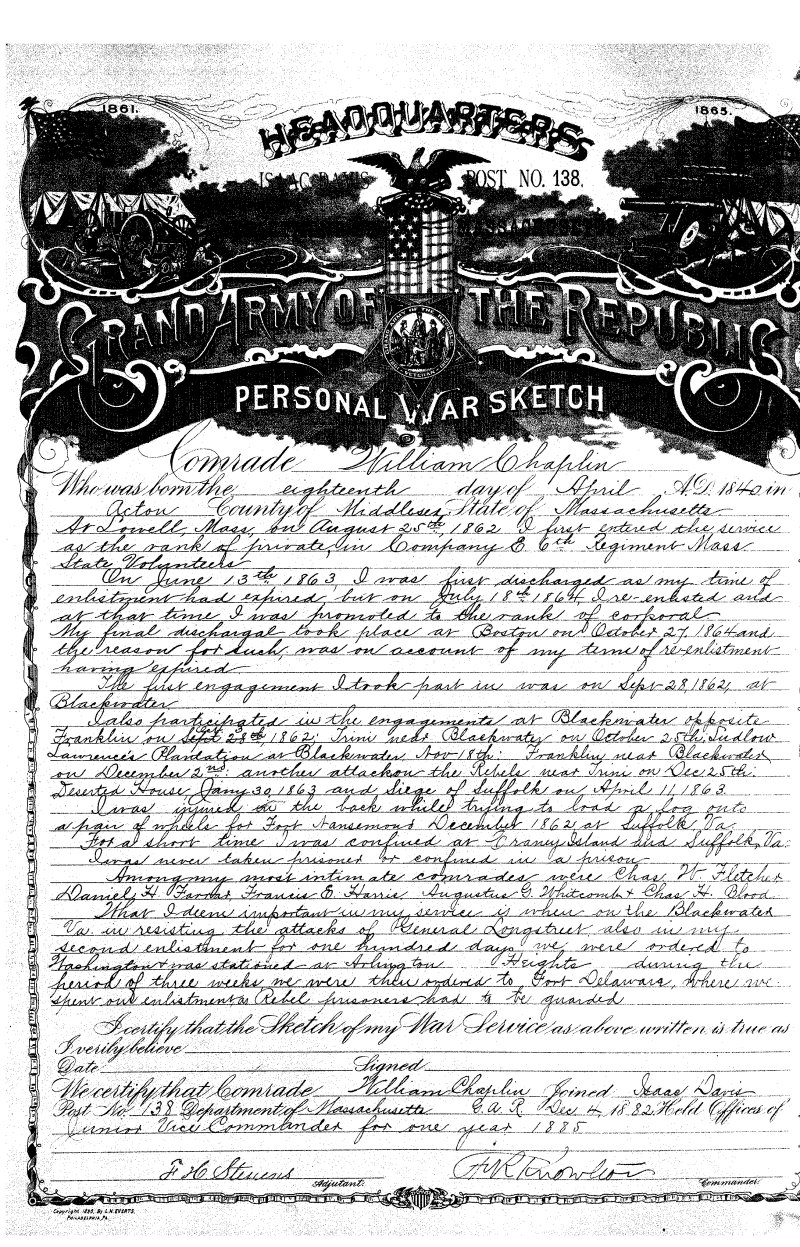 1861.
1865.
HEADQUARTERS
ISAAC DAVIS POST NO. 138.
MASSACHUSETTS
GRAND ARMY OF THE REPUBLIC
PERSONAL WAR SKETCH
Comrade William Chaplin
Who was born the eighteenth day of April A.D. 1840 in
Acton County of Middlesex, State of Massachusetts
At Lowell, Mass, on August 25th, 1862 I first entered the service
as the rank of private, in Company E. 6th Regiment Mass.
State Volunteers
On June 13th 1863, I was first discharged as my time of
enlistment had expired, but on July 18th 1864, I re-enlisted and
at that time I was promoted to the rank of corporal
My final dischargal took place at Boston on October 27, 1864 and
the reason for such, was on account of my term of re-enlistment
having expired
The first engagement I took part in was on Sept 28, 1862, at
Blackwater
I also participated in the engagements at Blackwater opposite
Franklin on Sept 28th, 1862; Trini near Blackwater on October 25th; Sudlow
Lawrence's Plantation at Blackwater, Nov-18th; Franklin near Blackwater
on December 2nd; another attack on the Rebels near Trini on Dec 25th;
Deserted House, Jany 30, 1863 and Siege of Suffolk on April 11, 1863.
I was injured in the back while trying to load a log onto
a pair of wheels for Fort Nansemond December 1862, at Suffolk, Va.
For a short time I was confined at Craney Island and Suffolk, Va.
I was never taken prisoner or confined in a prison
Among my most intimate comrades were Chas. W. Fletcher
Daniel H. Farrar, Francis E. Harris, Augustus G. Whitcomb & Chas. H. Blood.
What I deem important in my service is when on the Blackwater
Va. in resisting the attacks of General Longstreet also in my
second enlistment for one hundred days we were ordered to
Washington & was stationed at Arlington Heights during the
period of three weeks, we were then ordered to Fort Delaware, where we
spent our enlistment as Rebel prisoners had to be guarded
I certify that the Sketch of my War Service as above written is true as
I verily believe
Date Signed
We certify that Comrade William Chaplin Joined Isaac Davis
Post No. 138 Department of Massachusetts G.A.R. Dec 4, 1882 Held Offices of
Junior Vice Commander for one year 1885
F. H. Stevens Adjutant. Knowlton Commander.
Copyright 1890, By L.H. EVERTS.
PHILADELPHIA, PA.